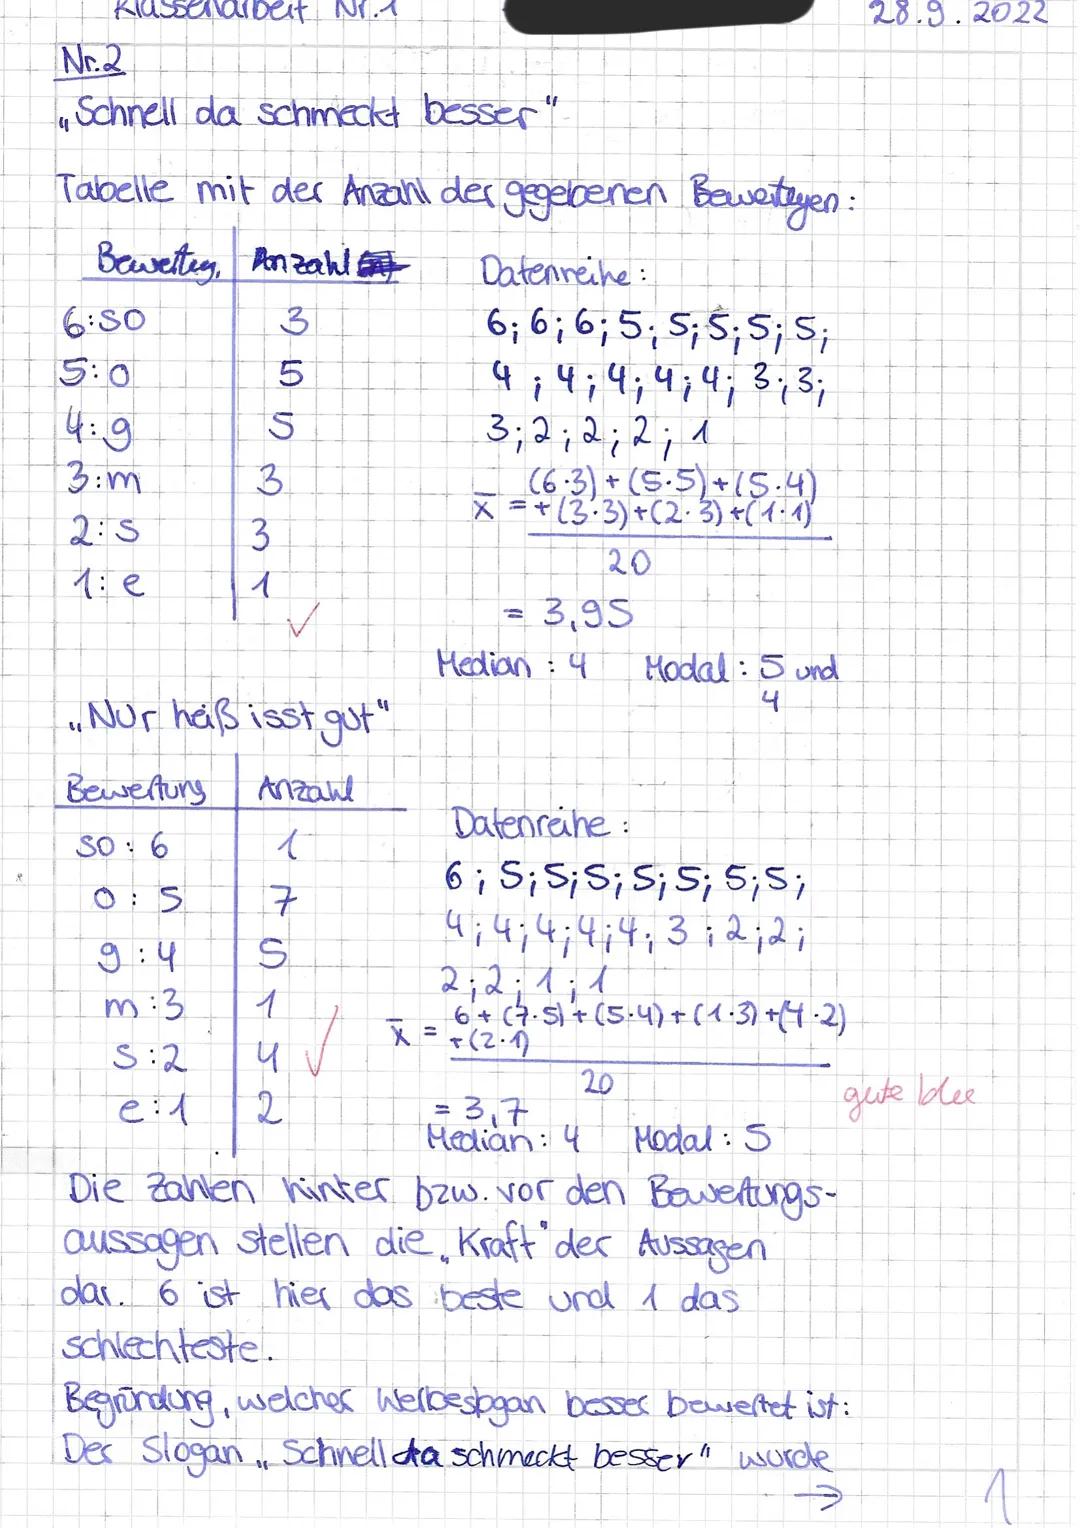 Klassenarbeit Nr.1 28.9.2022
Nr.2
„Schnell da schmeckt besser"
Tabelle mit der Anzahl der gegebenen Bewertugen:
Bewertug. Anzahl
6:so 3
5:o 5
4:g 5
3:m 3
2:s 3
1:e 1
Datenreihe:
6; 6; 6; 5; 5; 5; 5; 5;
4; 4; 4; 4; 4; 3; 3;
3; 2; 2; 2; 1
(6·3)+(5·5)+(5·4)
x̄ = +(3·3)+(2·3)+(1·1)
20
= 3,95
Median : 4 Modal : 5 und
4
„Nur heiß isst gut"
Bewertung Anzahl
so : 6 1
o : 5 7
g : 4 5
m : 3 1
s : 2 4
e : 1 2
Datenreihe :
6; 5; 5; 5; 5; 5; 5; 5;
4; 4; 4; 4; 4; 3; 2; 2;
2; 2; 1; 1
6+(7·5)+(5·4)+(1·3)+(4·2)
x̄ = +(2·1)
20
gute Idee
= 3,7
Median: 4 Modal: 5
Die Zahlen hinter bzw. vor den Bewertungs-
aussagen stellen die „Kraft" der Aussagen
dar. 6 ist hier das beste und 1 das
schlechteste.
Begründung, welcher Werbeslogan besser bewertet ist:
Der Slogan „Schnell da schmeckt besser" wurde
→ 1